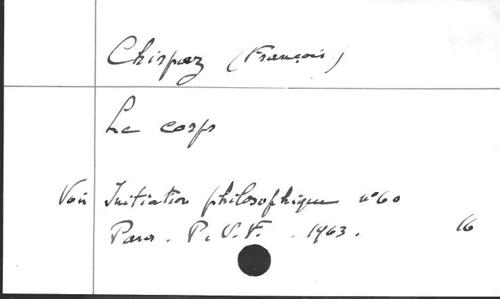 Chirpaz (François)
Le corps
Voir Initiation philosophique n° 60
Paris. P.U.F. . 1963. 16